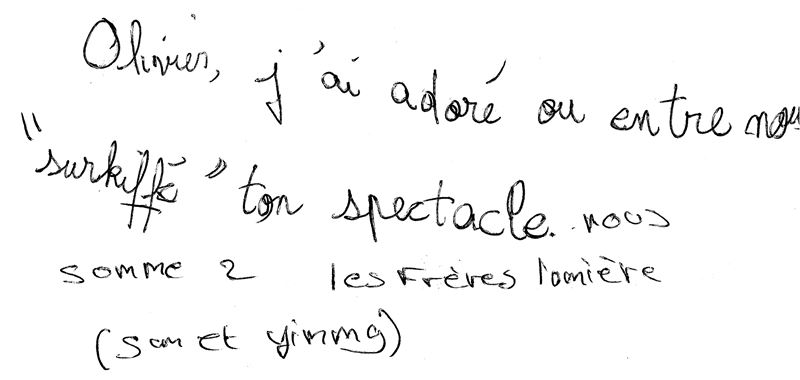 Olivier, j'ai adoré ou entre nous
"surkiffé" ton spectacle. nous
somme 2 les Frères lomière
(Sam et yimmy)